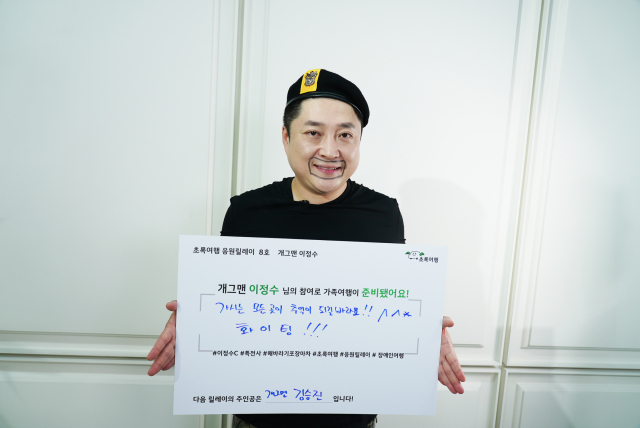 초록여행 응원릴레이 8호 개그맨 이정수
초록여행
개그맨 이정수 님의 참여로 가족여행이 준비됐어요!
가시는 모든 곳이 추억이 되길 바라요!! ^^*
화이팅!!!
#이정수C #특전사 #해바라기포장마차 #초록여행 #응원릴레이 # 장애인여행
다음 릴레이의 주인공은 개그맨 김승진 입니다!